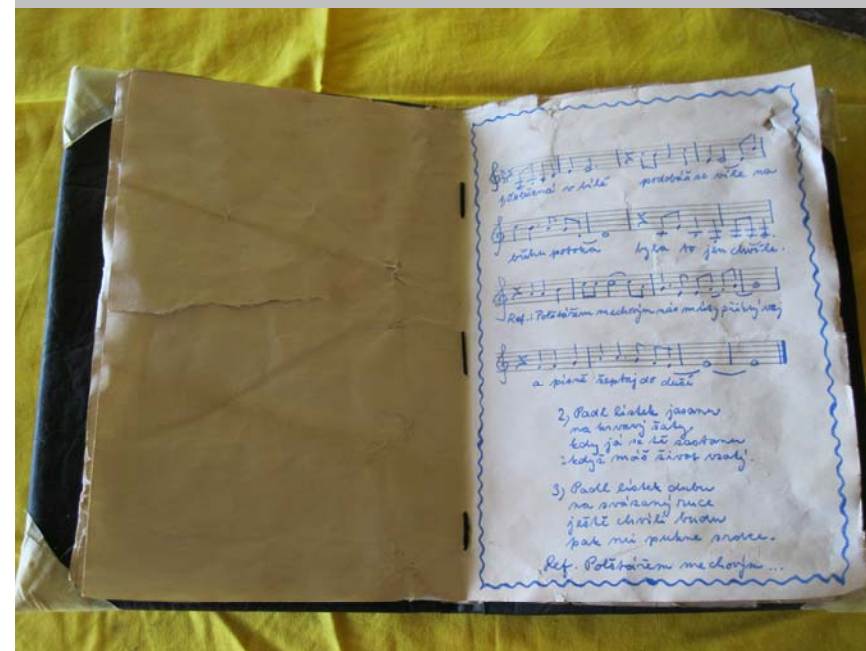 oblečená v bílé podobáš se víle na
břehu potoka byla to jen chvíle.
Ref.: Polštářem mechovým nás můžeš přikrývej
a písně šeptaj do duší
2) Padl lístek jasanu
na krvavý šaty
kdy já se tě zastanu
když máš život vzatý.
3) Padl lístek dubu
na svázaný ruce
ještě chvíli budu
pak mi pukne srdce.
Ref. Polštářem mechovým ...